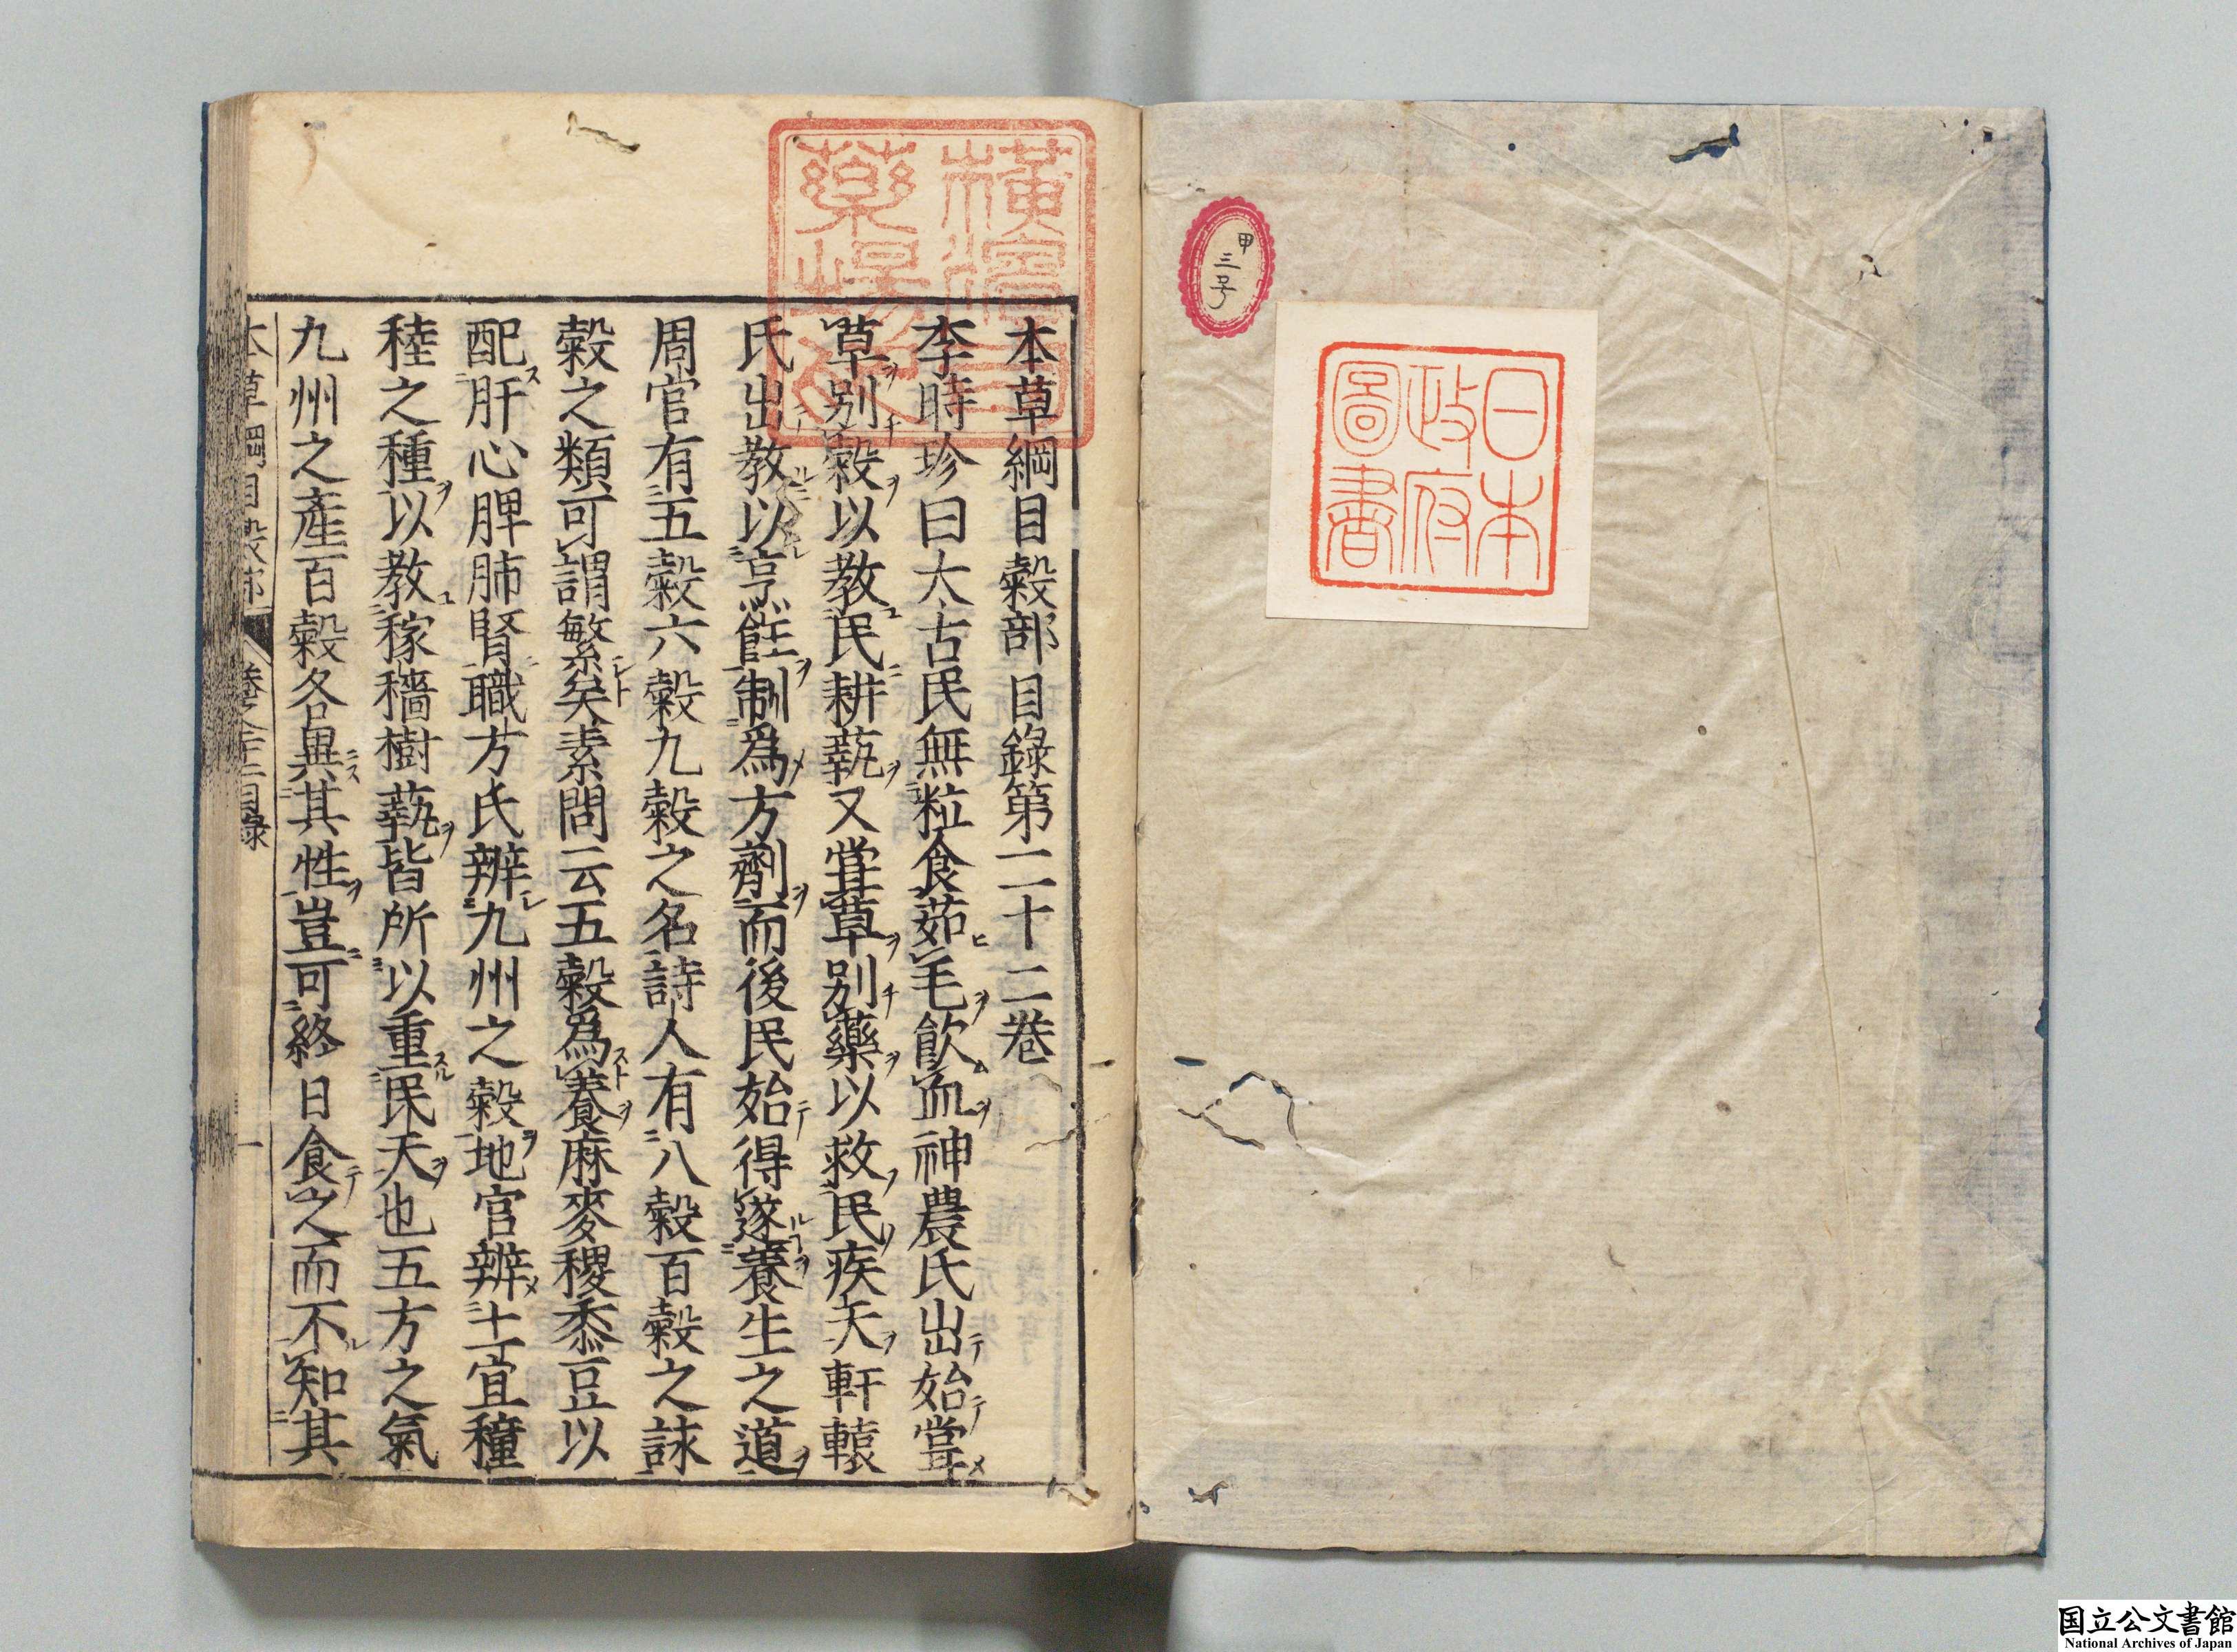 甲
三号
日本
政府
圖書
本草綱目穀部目錄第二十二卷
李時珍曰太古民無粒食茹毛飲血神農氏出始嘗
草別穀以教民耕蓺又嘗草別藥以救民疾夭軒轅
氏出教以烹飪制爲方劑而後民始得遂養生之道
周官有五穀六穀九穀之名詩人有八穀百穀之詠
穀之類可謂繁矣素問云五穀爲養麻麥稷黍豆以
配肝心脾肺腎職方氏辨九州之穀地官辨土宜穜
稑之種以教稼穡樹蓺皆所以重民天也五方之氣
九州之產百穀各異其性豈可終日食之而不知其
本草綱目穀部 卷之二十二目錄 一
国立公文書館
National Archives of Japan